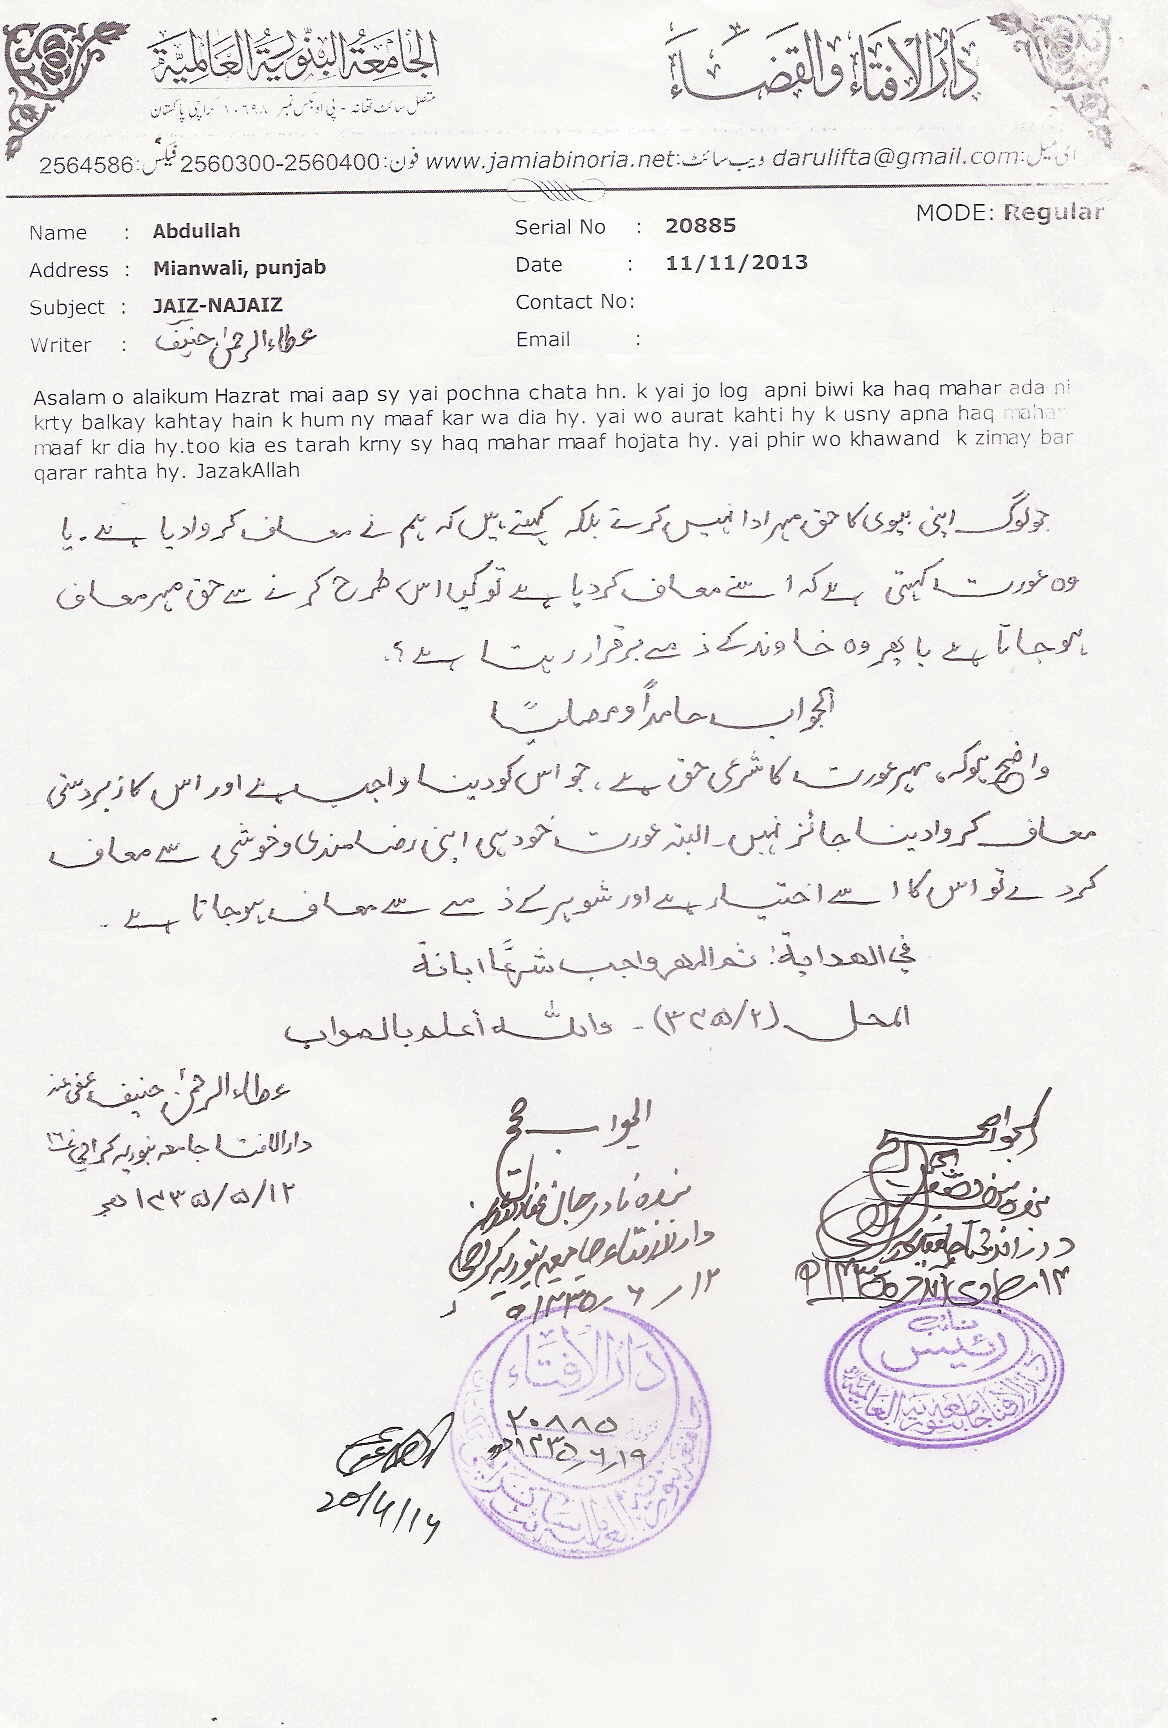 الجامعة البنورية العالمية
دار الافتاء والقضاء
متصل سائٹ تھانہ - پی او بکس نمبر ۱۰۶۹۸ کراچی پاکستان
ای میل:darulifta@gmail.com ویب سائٹ:www.jamiabinoria.net فون:2560300-2560400 فیکس:2564586
MODE: Regular
Name : Abdullah
Serial No : 20885
Address : Mianwali, punjab
Date : 11/11/2013
Subject : JAIZ-NAJAIZ
Contact No:
Writer : عطاء الرحمٰن حنیف
Email :
Asalam o alaikum Hazrat mai aap sy yai pochna chata hn. k yai jo log apni biwi ka haq mahar ada ni
krty balkay kahtay hain k hum ny maaf kar wa dia hy. yai wo aurat kahti hy k usny apna haq mahar
maaf kr dia hy.too kia es tarah krny sy haq mahar maaf hojata hy. yai phir wo khawand k zimay bar
qarar rahta hy. JazakAllah
جو لوگ اپنی بیوی کا حق مہر ادا نہیں کرتے بلکہ کہتے ہیں کہ ہم نے معاف کروا دیا ہے۔ یا
وہ عورت کہتی ہے کہ اسنے معاف کردیا ہے تو کیا اس طرح کرنے سے حق مہر معاف
ہوجاتا ہے یا پھر وہ خاوند کے ذمے برقرار رہتا ہے؟
الجواب حامداً ومصلیًا
واضح ہوکہ مہر عورت کا شرعی حق ہے، جو اس کو دینا واجب ہے اور اس کا زبردستی
معاف کروا دینا جائز نہیں۔ البتہ عورت خود ہی اپنی رضامندی و خوشی سے معاف
کردے تو اس کا اسے اختیار ہے اور شوہر کے ذمے سے معاف ہوجاتا ہے۔
في الهداية: ثم المهر واجب شرعًا ابانة
المحل (۳۴۵/۲)۔ والله أعلم بالصواب
عطاء الرحمٰن حنیف عفی عنہ
دارالافتاء جامعہ بنوریہ کراچی
۱۲/۵/۱۴۳۵ھ
الجواب صحیح
بندہ نادر جان
دارالافتاء جامعہ بنوریہ کراچی
۱۲/۶/۱۴۳۵ھ
الجواب صحیح
نائب
رئیس
دار الافتاء جامعہ بنوریہ العالمیہ
دار الافتاء
۲۰۸۸۵
۱۹/۶/۱۴۳۵ھ
20/4/14